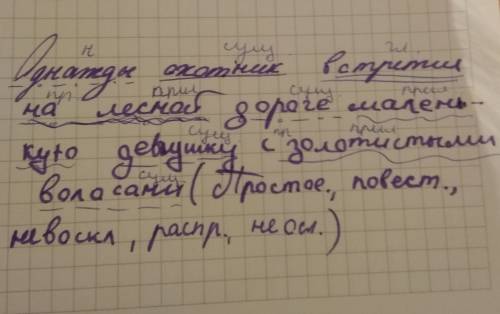 н сущ гл
Однажды охотник встретил
пр прил сущ прил
на лесной дороге малень-
сущ пр прил
кую девушку с золотистыми
сущ
воласами (Простое., повест.,
невоскл, распр., неосл.)